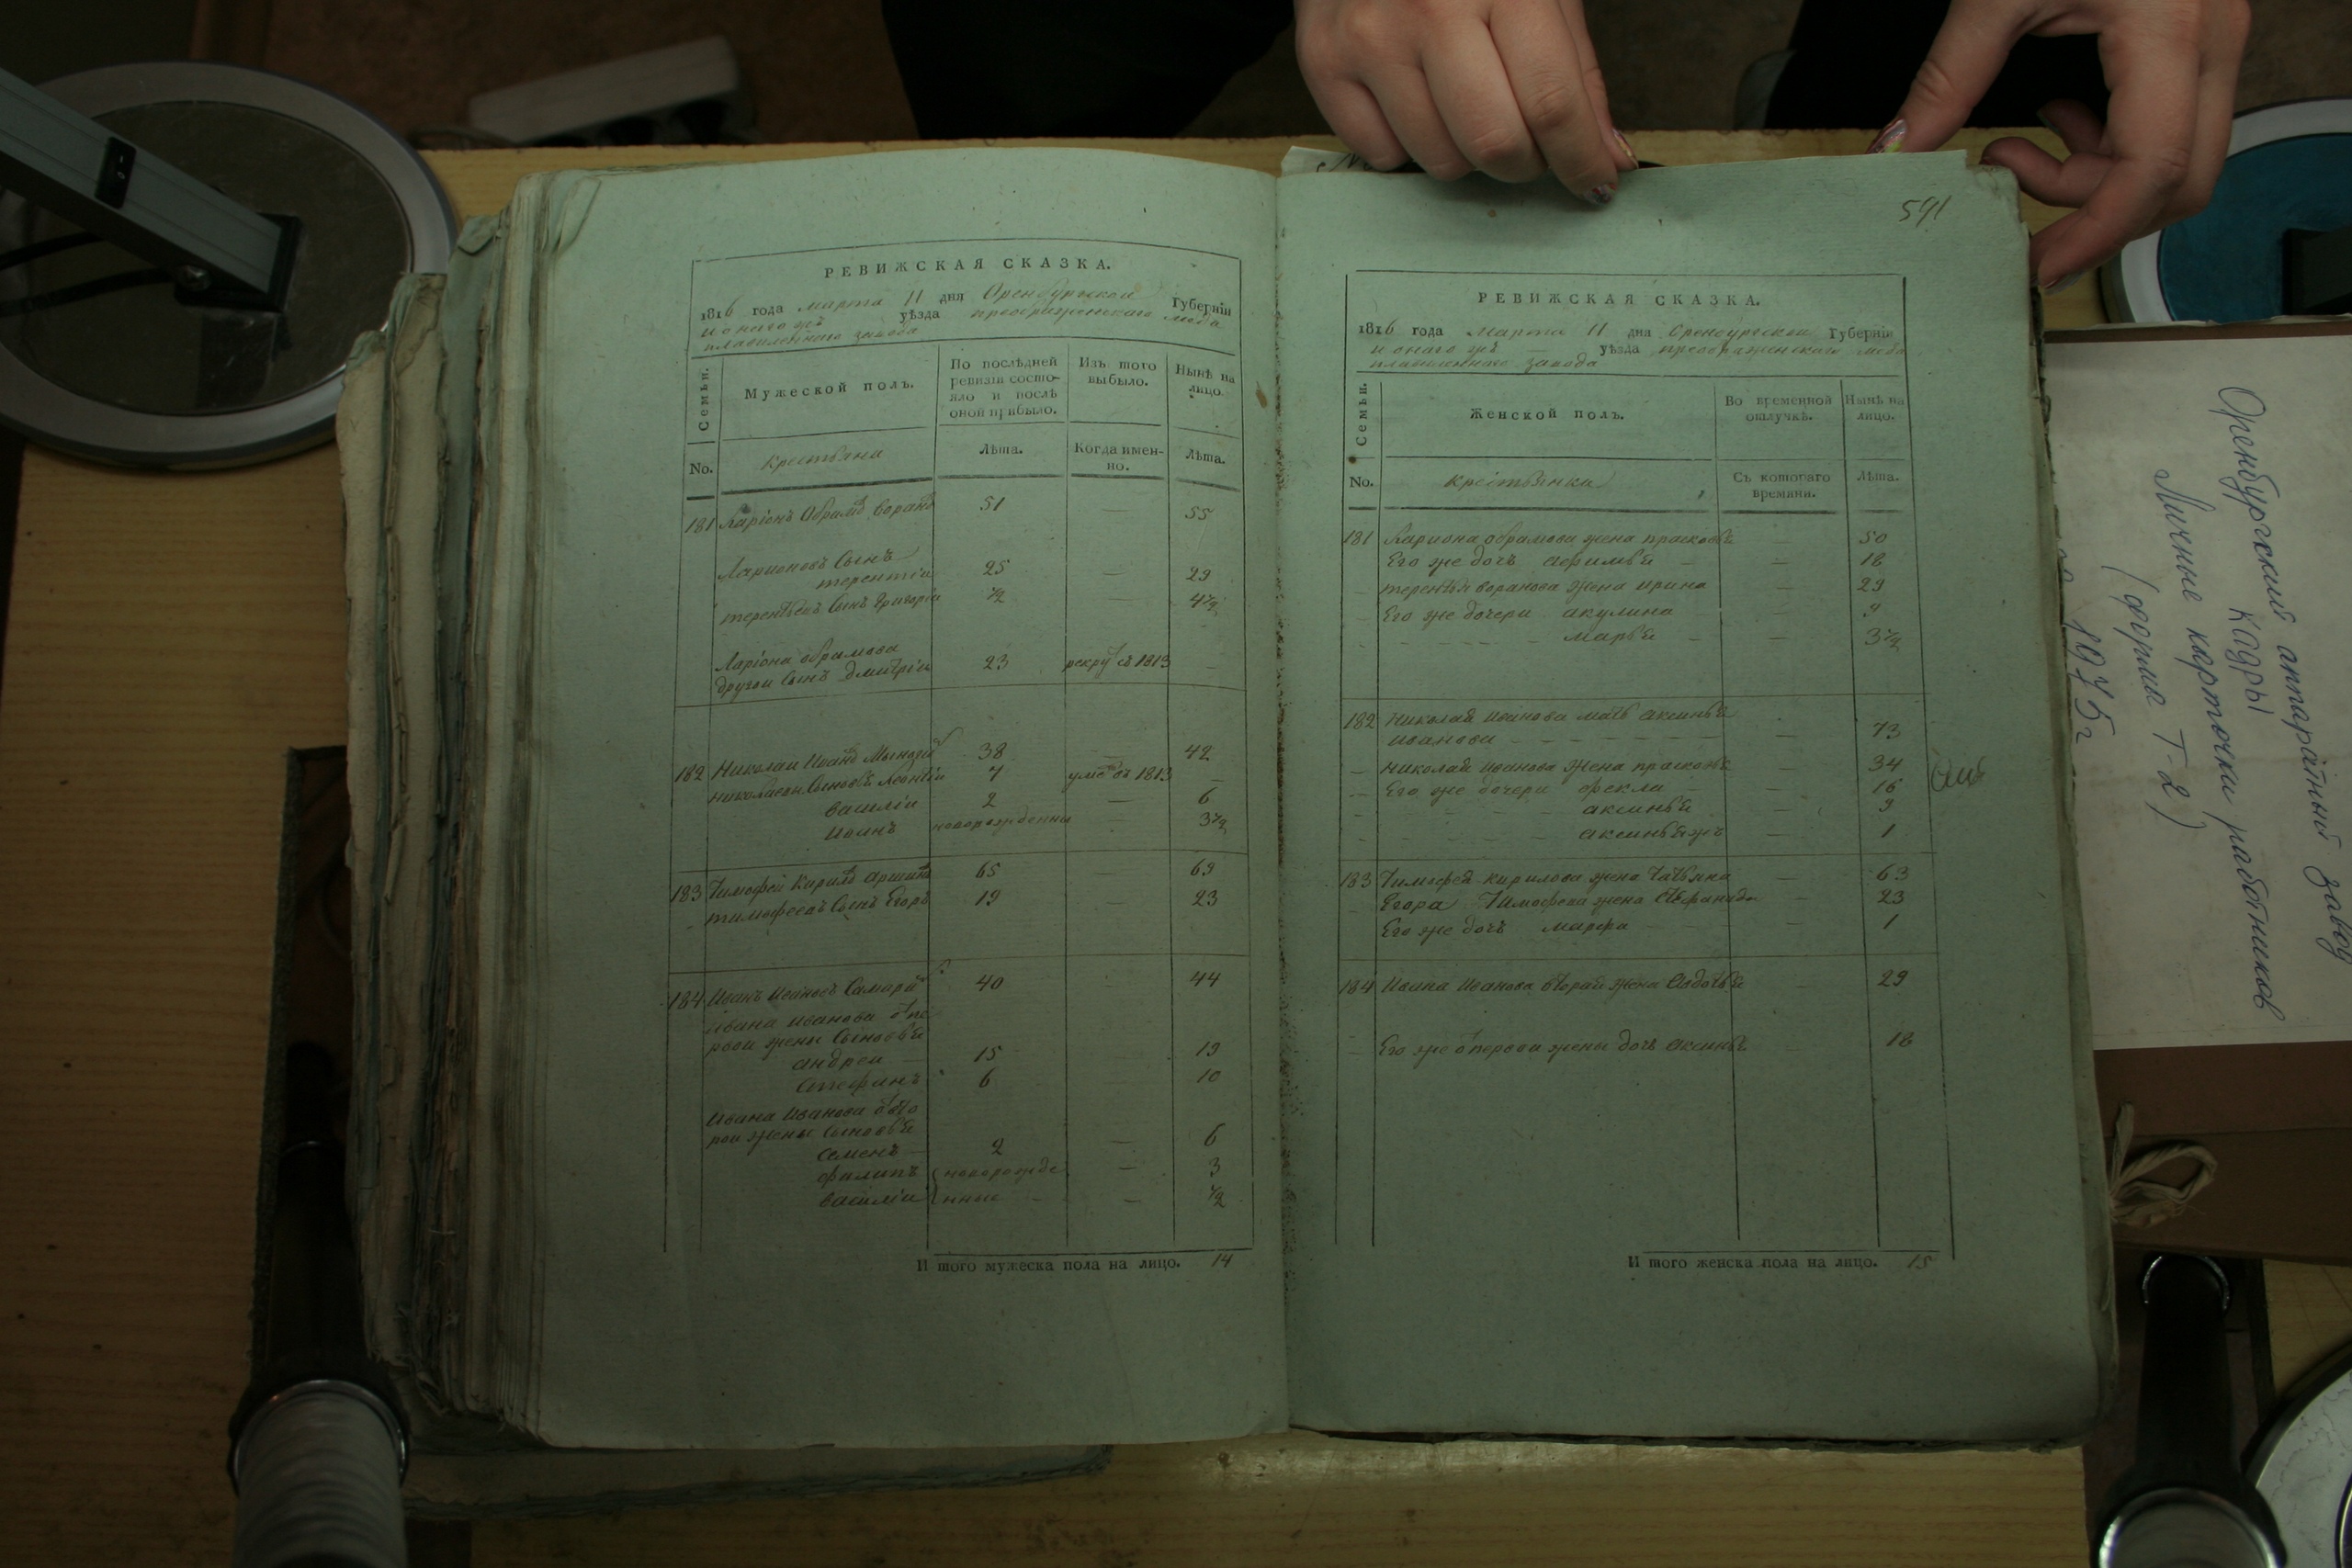 РЕВИЖСКАЯ СКАЗКА.
1816 года марта 11 дня Оренбургской Губернїи
и оного жъ уѣзда преображенскаго меде
плавиленнаго завода
Семьи.
Мужеской полъ.
По послѣдней ревизїи состояло и послѣ оной прибыло.
Изъ того выбыло.
Нынѣ на лицо.
No.
крестьяна
Лѣта.
Когда именно.
Лѣта.
181 Ларіонъ Обрамъ 51 — 55
Ларионовъ Сынъ
терентіи 25 — 29
терентьевъ Сынъ Григоріи ½ — 4½
Ларіона обрамова
другои Сынъ Дмитріи 23 рекру съ 1813 —
182 Николаи Иванъ 38 — 42
николаевы Сыновья Леонтіи 7 уме въ 1813 —
василіи 2 — 6
Иванъ новорожденны — 3½
183 Тимофеи Кирилъ 65 — 69
тимофеевъ Сынъ Егоръ 19 — 23
184 Иванъ Ивановъ Самара 40 44
ивана иванова от пе
рвои жены Сыновья
андреи 15 19
Стефанъ 6 10
Ивана Иванова от вто
рои жены Сыновья
Семенъ 2 — 6
филипъ новорожде — 3
василіи нныи — ½
И того мужеска пола на лицо. 14
591
РЕВИЖСКАЯ СКАЗКА.
1816 года марта 11 дня Оренбургской Губернїи
и онаго жъ — уѣзда преображенскаго меде
плавиленнаго завода
Семьи.
Женской полъ.
Во временной отлучкѣ.
Нынѣ на лицо.
No.
крестьянки
Съ котораго времяни.
Лѣта.
181 Лариона обрамова жена прасковья — 50
Его же дочь афимья — 18
терентья воранова жена ирина — 29
Его же дочери акулина — 9
марья — 3½
182 Николая иванова мать аксинья
иванова — 73
николая иванова жена прасковья — 34
Его же дочери фекла — 16
аксинья — 9
аксинья жъ — 1
183 Тимофея кирилова жена татьяна — 63
Егора Тимофева жена Стефанида — 23
Его же дочь марфа — 1
184 Ивана Иванова вторая жена Авдотья — 29
Его же от первои жены дочь аксинья — 18
И того женска пола на лицо. 15
Оренбургский аппаратный завод
Кадры
Личные карточки работников
(форма Т-2)
1975г